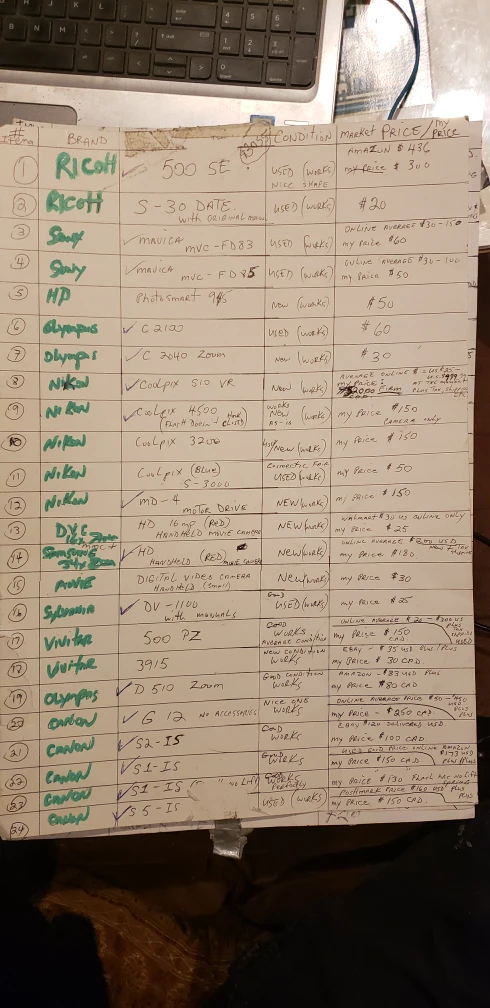 # Items BRAND CONDITION MARKET PRICE / MY PRICE
1 RICOH 500 SE USED (WORKS) NICE SHAPE AMAZON $ 436 my Price $ 300
2 RICOH S-30 DATE. with ORIGINAL USED (WORKS) $20
3 Sony MAVICA MVC-FD83 USED (WORKS) ONLINE AVERAGE $30-150 my Price $60
4 Sony MAVICA MVC-FD85 USED (WORKS) ONLINE AVERAGE $30-100 my Price $50
5 HP PhotoSmart 945 New (WORKS) $50
6 Olympus C 2100 USED (WORKS) $60
7 Olympus C 2040 Zoom New (WORKS) $30
8 NIKON COOLPIX S10 VR NEW (WORKS) AVERAGE ONLINE my Price: $2000 FIRM
9 NIKON COOLPIX 4500 WORKS NEW AS-IS my Price $150 CAMERA ONLY
10 NIKON COOLPIX 3200 New (WORKS) my Price $150
11 NIKON COOLPIX (BLUE) S-3000 USED (WORKS) my Price $50
12 NIKON MD-4 MOTOR DRIVE NEW (WORKS) my Price $150
13 D.V.C HD 16mp (RED) HANDHELD MOVIE CAMERA NEW (WORKS) WALMART $30 US ONLINE ONLY my Price $25
14 Samsung HD HANDHELD (RED) New (WORKS) ONLINE AVERAGE USD my Price $180
15 MOVIE DIGITAL VIDEO CAMERA HANDHELD (small) New (WORKS) my Price $30
16 Sylvania DV-1100 with manuals Good USED (WORKS) my Price $25
17 VIVITAR 500 PZ GOOD WORKS AVERAGE CONDITION ONLINE AVERAGE my Price $150 CAD
18 VIVITAR 3915 NEW CONDITION WORKS EBAY - $35 USD PLUS/PLUS my Price $30 CAD
19 OLYMPUS D 510 Zoom GOOD CONDITION WORKS AMAZON - $83 USD PLUS my Price $80 CAD
20 CANON G 12 NO ACCESSORIES NICE AND WORKS ONLINE AVERAGE PRICE my Price - $250 CAD
21 CANON S2-IS GOOD WORKS EBAY $120 DELIVERED USD. my Price $100 CAD
22 CANON S1-IS GOOD WORKS USED GOOD PRICE ONLINE AMAZON $173 USD PLUS/PLUS my Price $150 CAD
23 CANON S1-IS WORKS PERFECTLY my Price $130
24 CANON S5-IS USED (WORKS) PRICE $160 USD PLUS PLUS my Price $150 CAD.